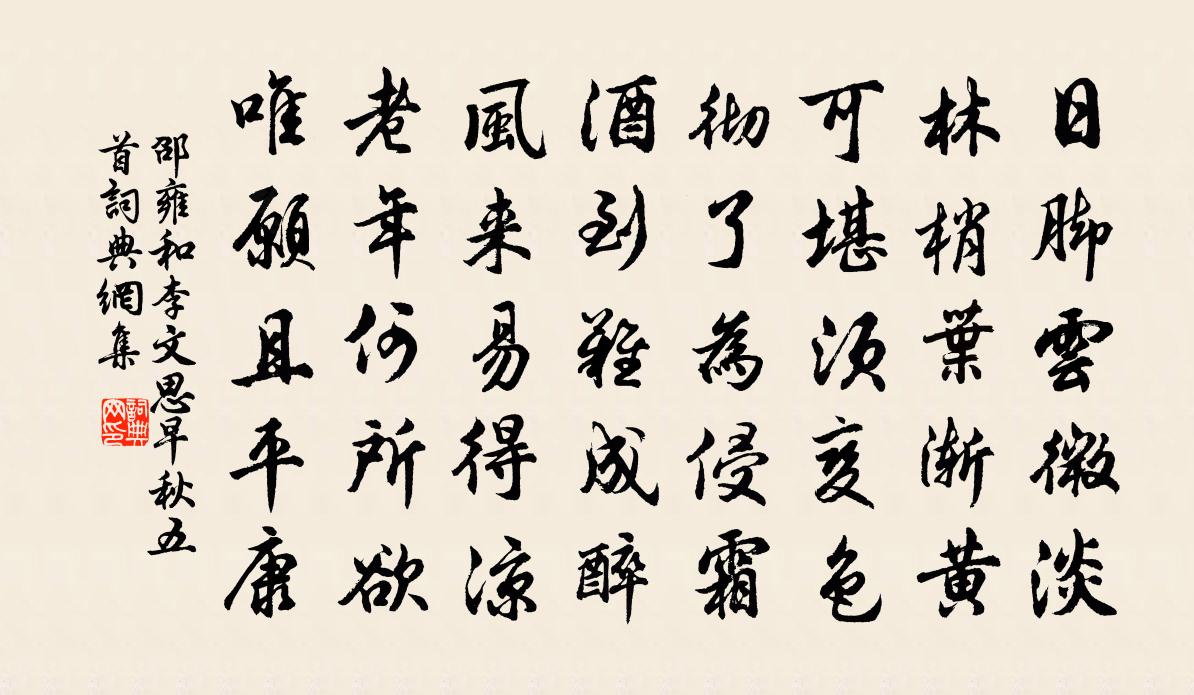 日脚雲微淡
林梢葉漸黃
可堪須變色
彻了為侵霜
酒到難成醉
風来易得涼
老年何所欲
唯願且平康
邵雍和李文思早秋五
首詞典網集
詞典
网印